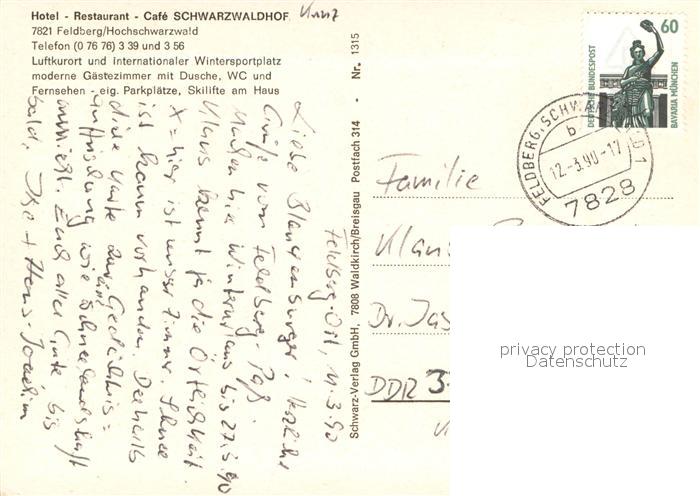 Hotel - Restaurant - Café SCHWARZWALDHOF
7821 Feldberg/Hochschwarzwald
Telefon (0 76 76) 3 39 und 3 56
Luftkurort und Internationaler Wintersportplatz
moderne Gästezimmer mit Dusche, WC und
Fernsehen - eig. Parkplätze, Skilifte am Haus
Feldberg-Ort, 11.3.90
Liebe Blankenburger! Herzliche
Grüße vom Feldberg. Daß
machen hier Winterurlaub bis 27.3.90
Klaus kennt ja die Örtlichkeit.
X = hier ist unser Zimmer. Schnee
ist kaum vorhanden. Deshalb
diese Karte zur Gedächtnis=
auffrischung wie eine Schneelandschaft
aussieht. Euch alles Gute bis
bald, Ilse + Hans-Joachim
Schwarz-Verlag GmbH, 7808 Waldkirch/Breisgau Postfach 314 - Nr. 1315
60
DEUTSCHE BUNDESPOST
BAVARIA MÜNCHEN
FELDBERG, SCHWARZW 1
b
12.-3.90-17
7828
Familie
Klaus
Dr.
DDR
privacy protection
Datenschutz